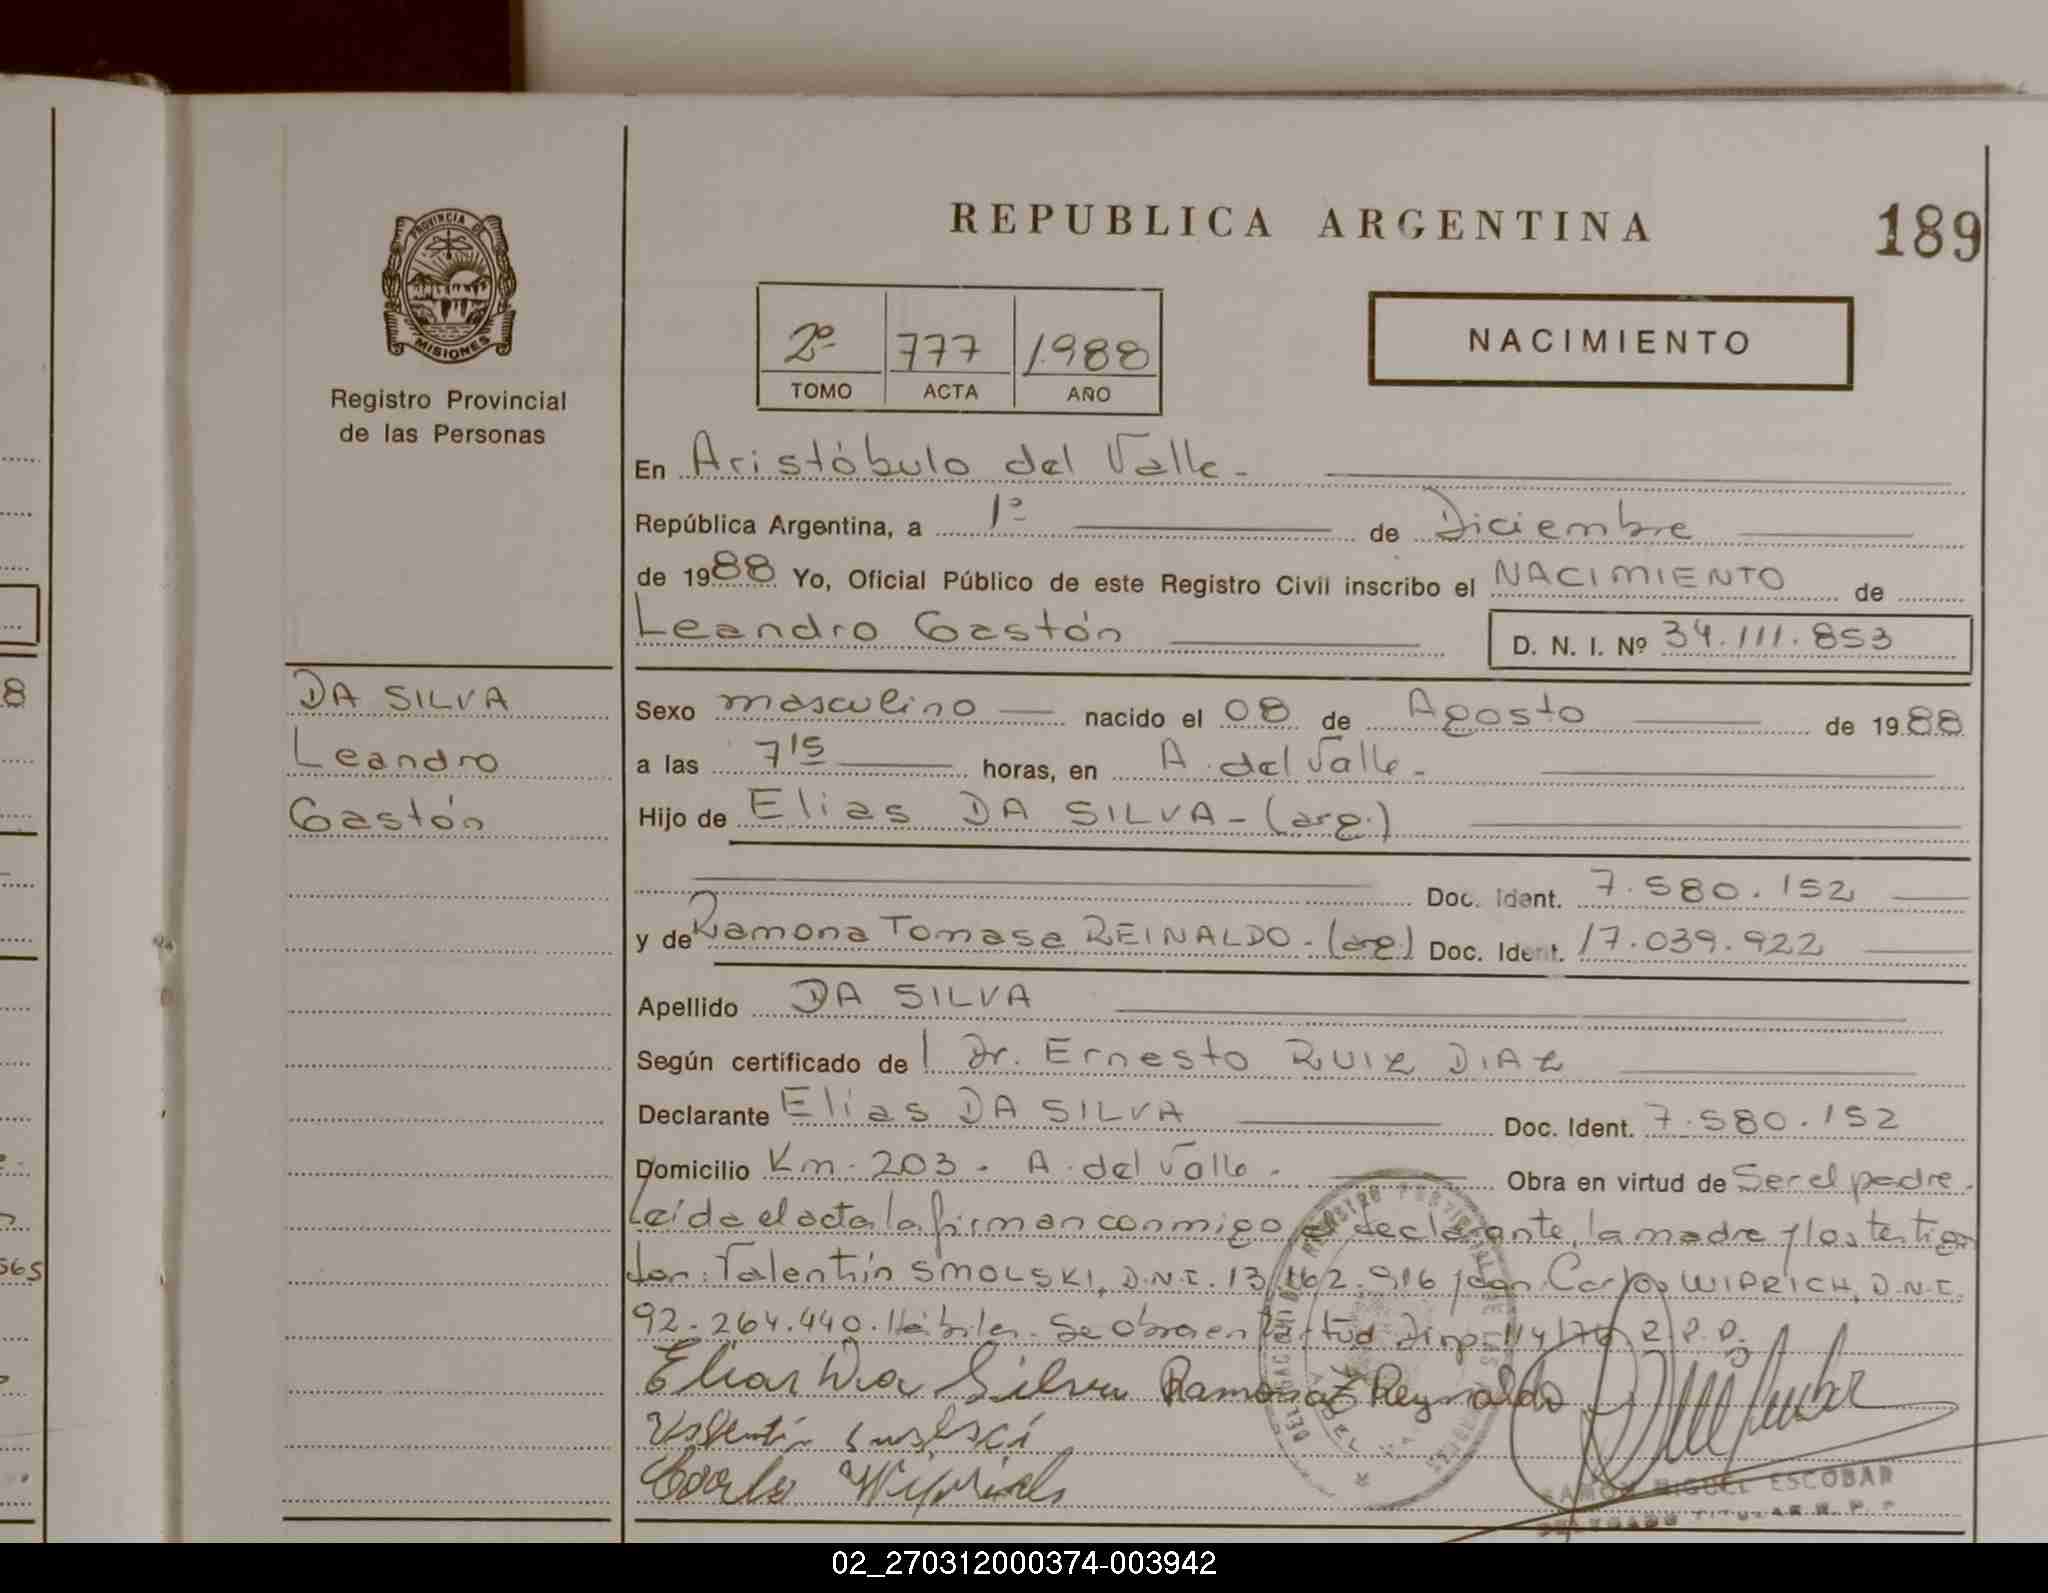 REPUBLICA ARGENTINA
189
PROVINCIA DE
MISIONES
Registro Provincial
de las Personas
2º 777 1988
TOMO ACTA AÑO
NACIMIENTO
En Aristóbulo del Valle.
República Argentina, a 1º de Diciembre
de 1988 Yo, Oficial Público de este Registro Civil inscribo el NACIMIENTO de
Leandro Gastón
D. N. I. Nº 34.111.853
DA SILVA
Leandro
Gastón
Sexo masculino nacido el 08 de Agosto de 1988
a las 7 15 horas, en A. del Valle.
Hijo de Elias DA SILVA - (arg.)
Doc. Ident. 7.580.152
y de Ramona Tomasa REINALDO - (arg.) Doc. Ident. 17.039.922
Apellido DA SILVA
Según certificado de l Dr. Ernesto RUIZ DIAZ
Declarante Elias DA SILVA Doc. Ident. 7.580.152
Domicilio Km. 203 - A. del Valle. Obra en virtud de Ser el padre.
Leída el acta la firman conmigo el declarante, la madre y los testigos
don: Valentín SMOLSKI, D.N.I. 13.162.916 y don Carlos WIPRICH, D.N.I.
92.264.440. Hábiles. Se obra en virtud R.P.P.
Elias Da Silva Ramona Reynaldo
Carlos Wiprich
RAMON MIGUEL ESCOBAR
DELEGADO TITULAR R.P.P.
565
8
02_270312000374-003942